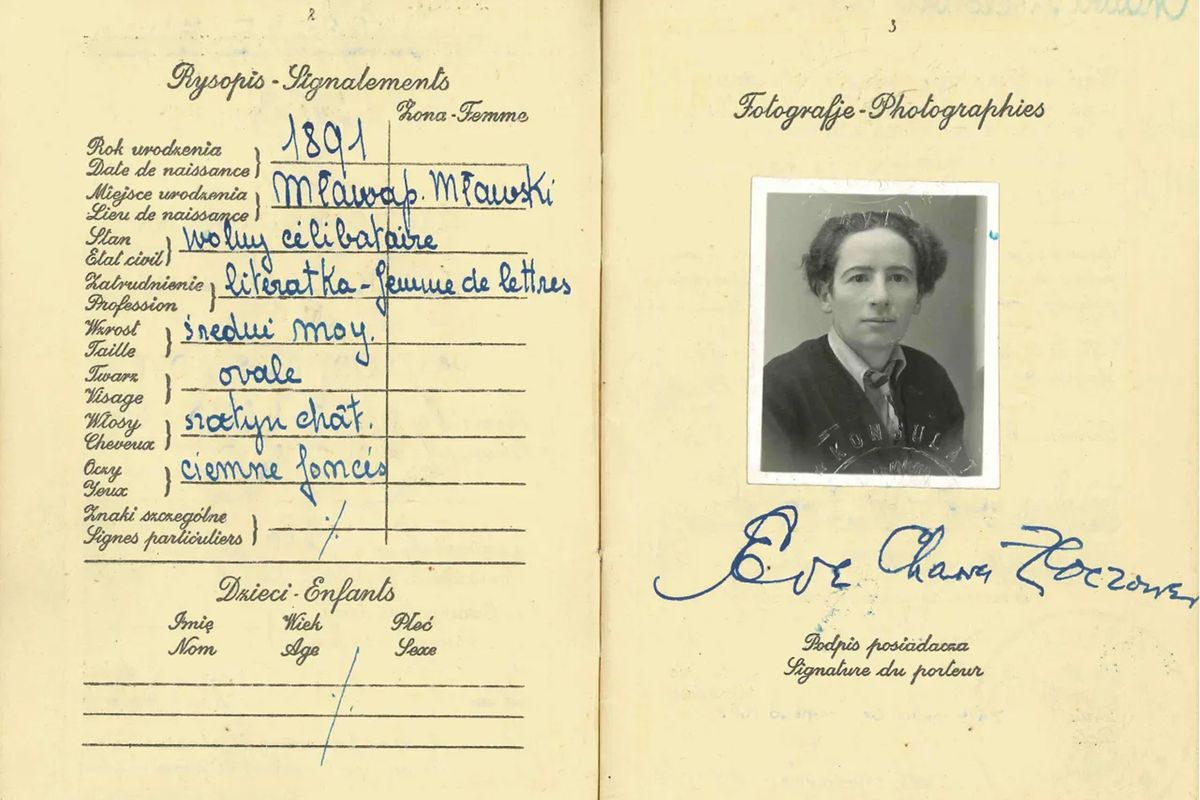 2
Rysopis - Signalements
Żona - Femme
Rok urodzenia
Date de naissance
1891
Miejsce urodzenia
Lieu de naissance
Mława p. Mławski
Stan
Etat civil
wolny célibataire
Zatrudnienie
Profession
literatka - femme de lettres
Wzrost
Taille
średni moy.
Twarz
Visage
ovale
Włosy
Cheveux
szatyn chât.
Oczy
Yeux
ciemne foncés
Znaki szczególne
Signes particuliers
Dzieci - Enfants
Imię Wiek Płeć
Nom Age Sexe
3
Fotografje - Photographies
KONSULAT
Eve Chawa
Podpis posiadacza
Signature du porteur